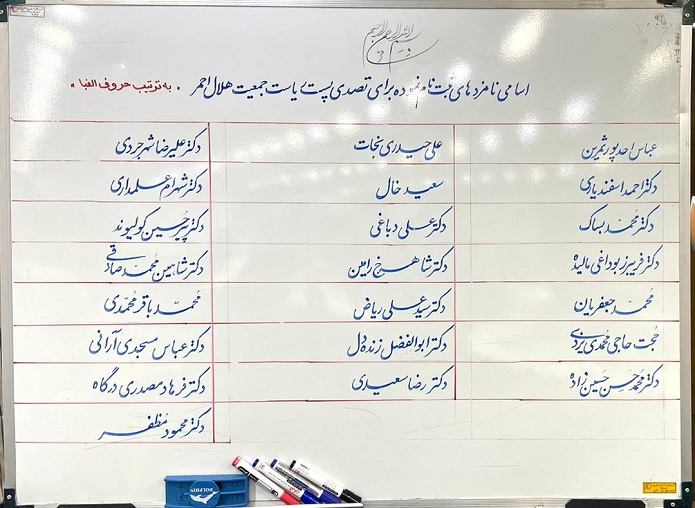 بسم الله الرحمن الرحیم
اسامی نامزدهای ثبت نام نموده برای تصدی پست ریاست جمعیت هلال احمر "به ترتیب حروف الفبا"
عباس احدپور ثمرین
دکتر احمد اسفندیاری
دکتر محمد بساک
دکتر فریبرز بوداغی مالیده
محمد جعفریان
حجت حاجی محمدی یزدی
دکتر محمد حسن حسین زاده
علی حیدری نجات
سعید خال
دکتر علی دباغی
دکتر شاهرخ رامین
دکتر سید علی ریاض
دکتر ابوالفضل زنده دل
دکتر رضا سعیدی
دکتر علیرضا شهرجردی
دکتر شهرام علمداری
دکتر پیرحسین کولیوند
دکتر شاهین محمد صادقی
محمد باقر محمدی
دکتر عباس مسجدی آرانی
دکتر فرهاد مصدری درگاه
دکتر محمود مظفر
DOLPHIN